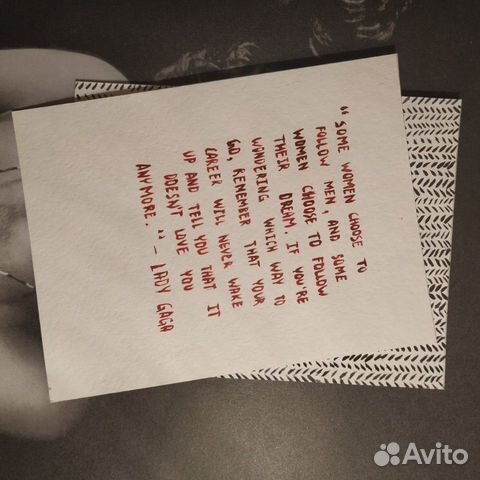 “ SOME WOMEN CHOOSE TO
FOLLOW MEN, AND SOME
WOMEN CHOOSE TO FOLLOW
THEIR DREAM. IF YOU'RE
WONDERING WHICH WAY TO
GO, REMEMBER THAT YOUR
CAREER WILL NEVER WAKE
UP AND TELL YOU THAT IT
DOESN'T LOVE YOU
ANYMORE. ” - LADY GAGA
Avito